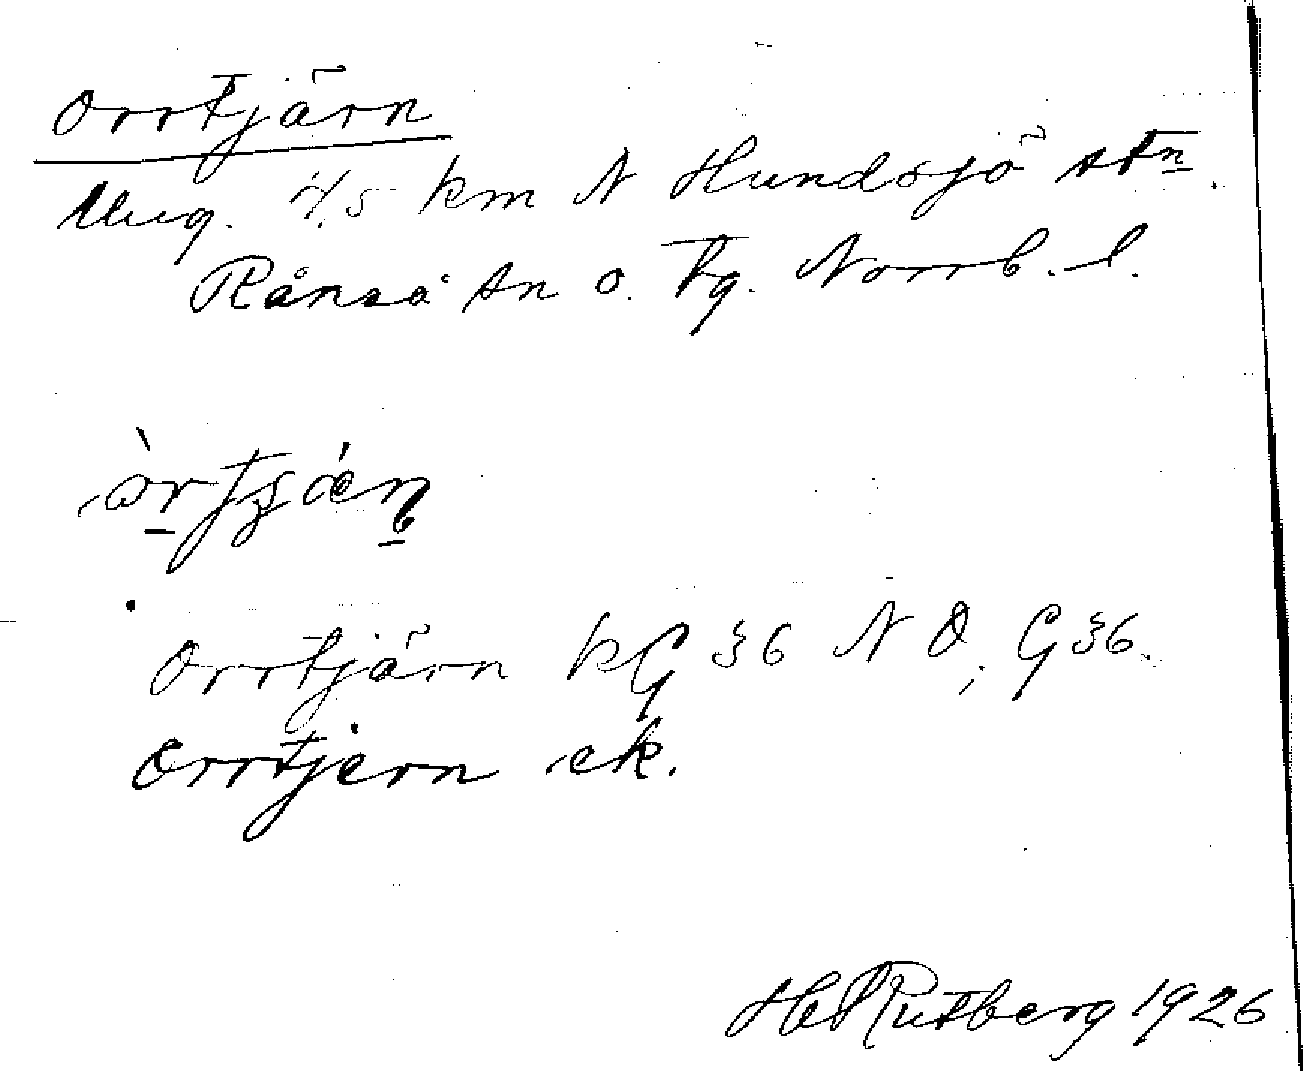 Orrtjärn
Ung. 1,5 km N Hundsjö stn.
Råneå sn o. tg. Norrb. l.
Orrtjärn kG 36 NO, G 36.
Orrtjern ek.
H Rutberg 1926